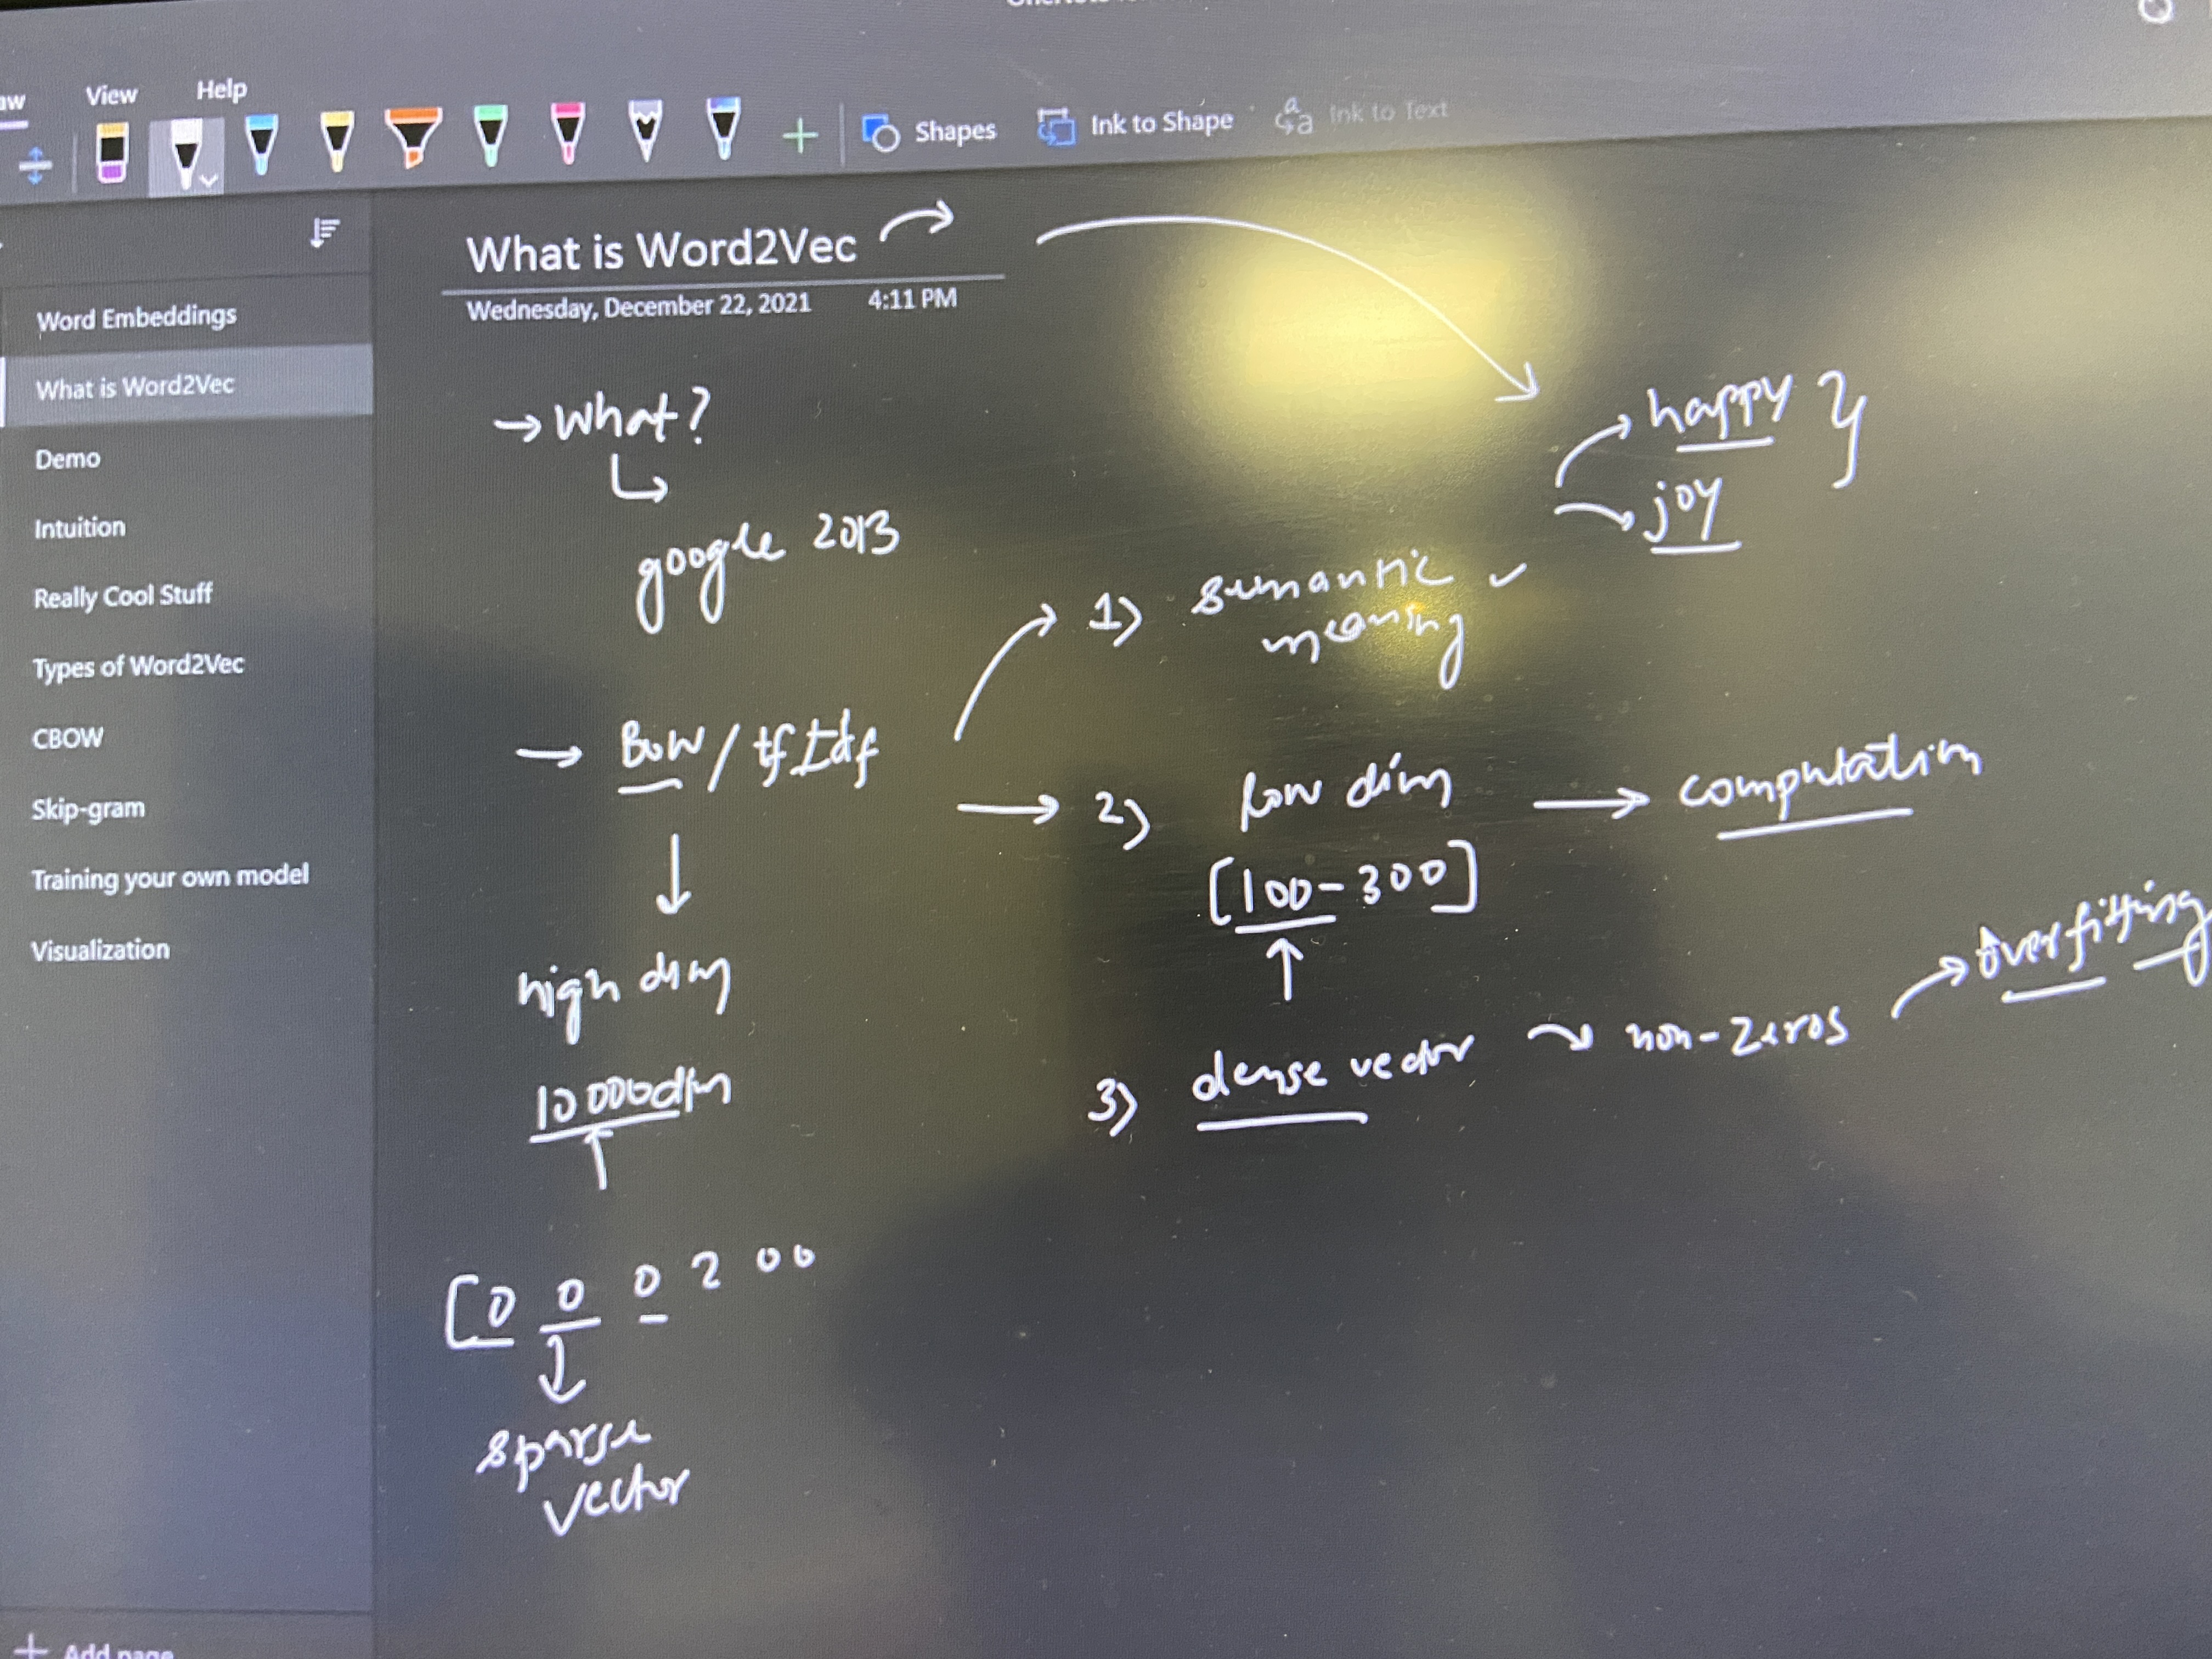 View Help
Shapes Ink to Shape Ink to Text
Word Embeddings
What is Word2Vec
Demo
Intuition
Really Cool Stuff
Types of Word2Vec
CBOW
Skip-gram
Training your own model
Visualization
Add page
What is Word2Vec
Wednesday, December 22, 2021 4:11 PM
→ What?
google 2013
→ BoW / tfIdf
high dim
10000dim
[0 0 0 2 0 0
sparse
vector
happy }
joy
1) semantic ✓
meaning
→ 2) low dim → computation
[100-300]
3) dense vector → non-zeros → overfitting